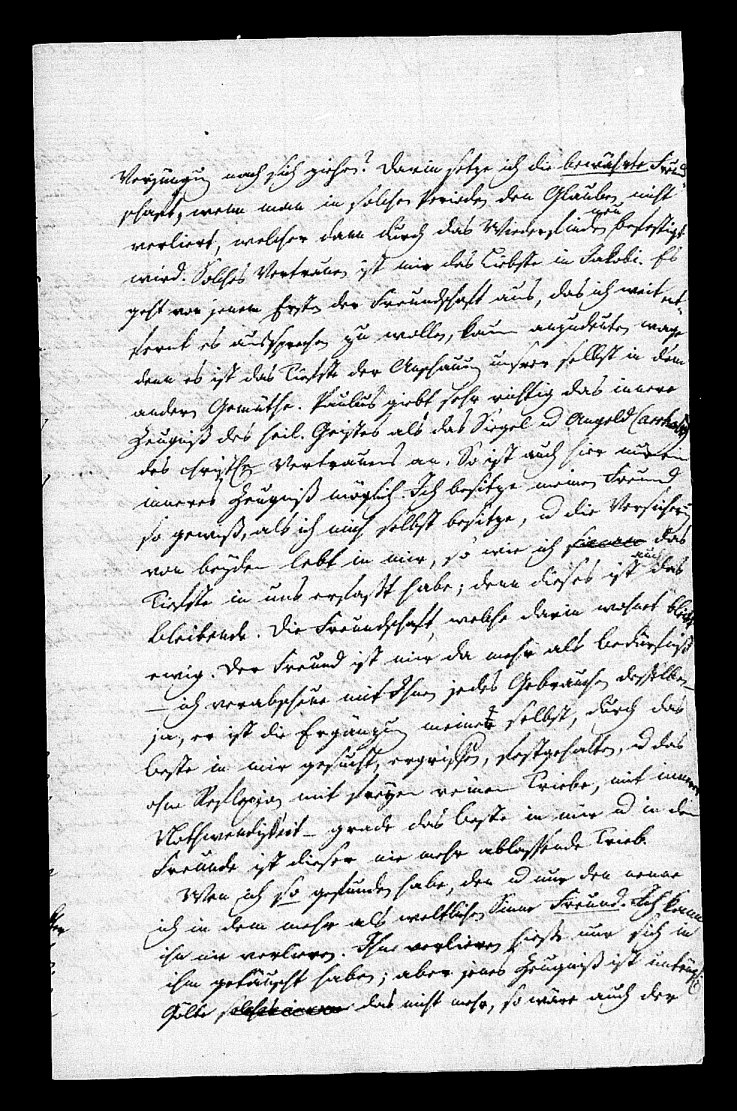 Verjüngung nach sich ziehen? Darin setze ich die bewährte Freund-
schaft, wenn man in solchen Perioden den Glauben nicht
verliert, welcher dann durch das Wiederfinden befestigt
wird. Solches Vertrauen ist mir das Liebste in Jakobi. Es
geht von jenem Ersten der Freundschaft aus, das ich weit ent-
fernt es aussprechen zu wollen, kaum anzudeuten wage
denn es ist das Tiefste der Anschauung unsrer selbst in dem
andern Gemüthe. Paulus giebt sehr richtig das innere
Zeugniß des heil. Geistes als das Siegel u Angeld
des christlichen Vertrauens an. So ist auch hier nur ein
inneres Zeugniß möglich. Ich besitze meinen Freund
so gewiß, als ich mich selbst besitze, u die Versicherung
von beyden lebt in mir, so wie ich das
Tiefste in uns erfaßt habe; denn dieses ist auch das
bleibende. Die Freundschaft, welche darin wohnet bleibt
ewig. Der Freund ist mir da mehr als Bedürfniß
— ich verabscheue mit Ihnen jedes Gebrauchen desselben —
ja, er ist die Ergänzung meiner selbst, durch das
beste in mir gesucht, ergriffen, festgehalten, u das
ohne Reflexion, mit freyen reinen Triebe, mit innerer
Nothwendigkeit — grade das beste in mir u in dem
Freunde ist dieser nie mehr ablassende Trieb.
Wen ich so gefunden habe, den u nur den nenne
ich in dem mehr als weltlichen Sinne Freund. Ich kann
ihn nie verlieren. Ihn verlieren hieße nur sich in
ihm getäuscht haben; aber jenes Zeugniß ist untrüglich
Gölte das nicht mehr, so wäre auch der